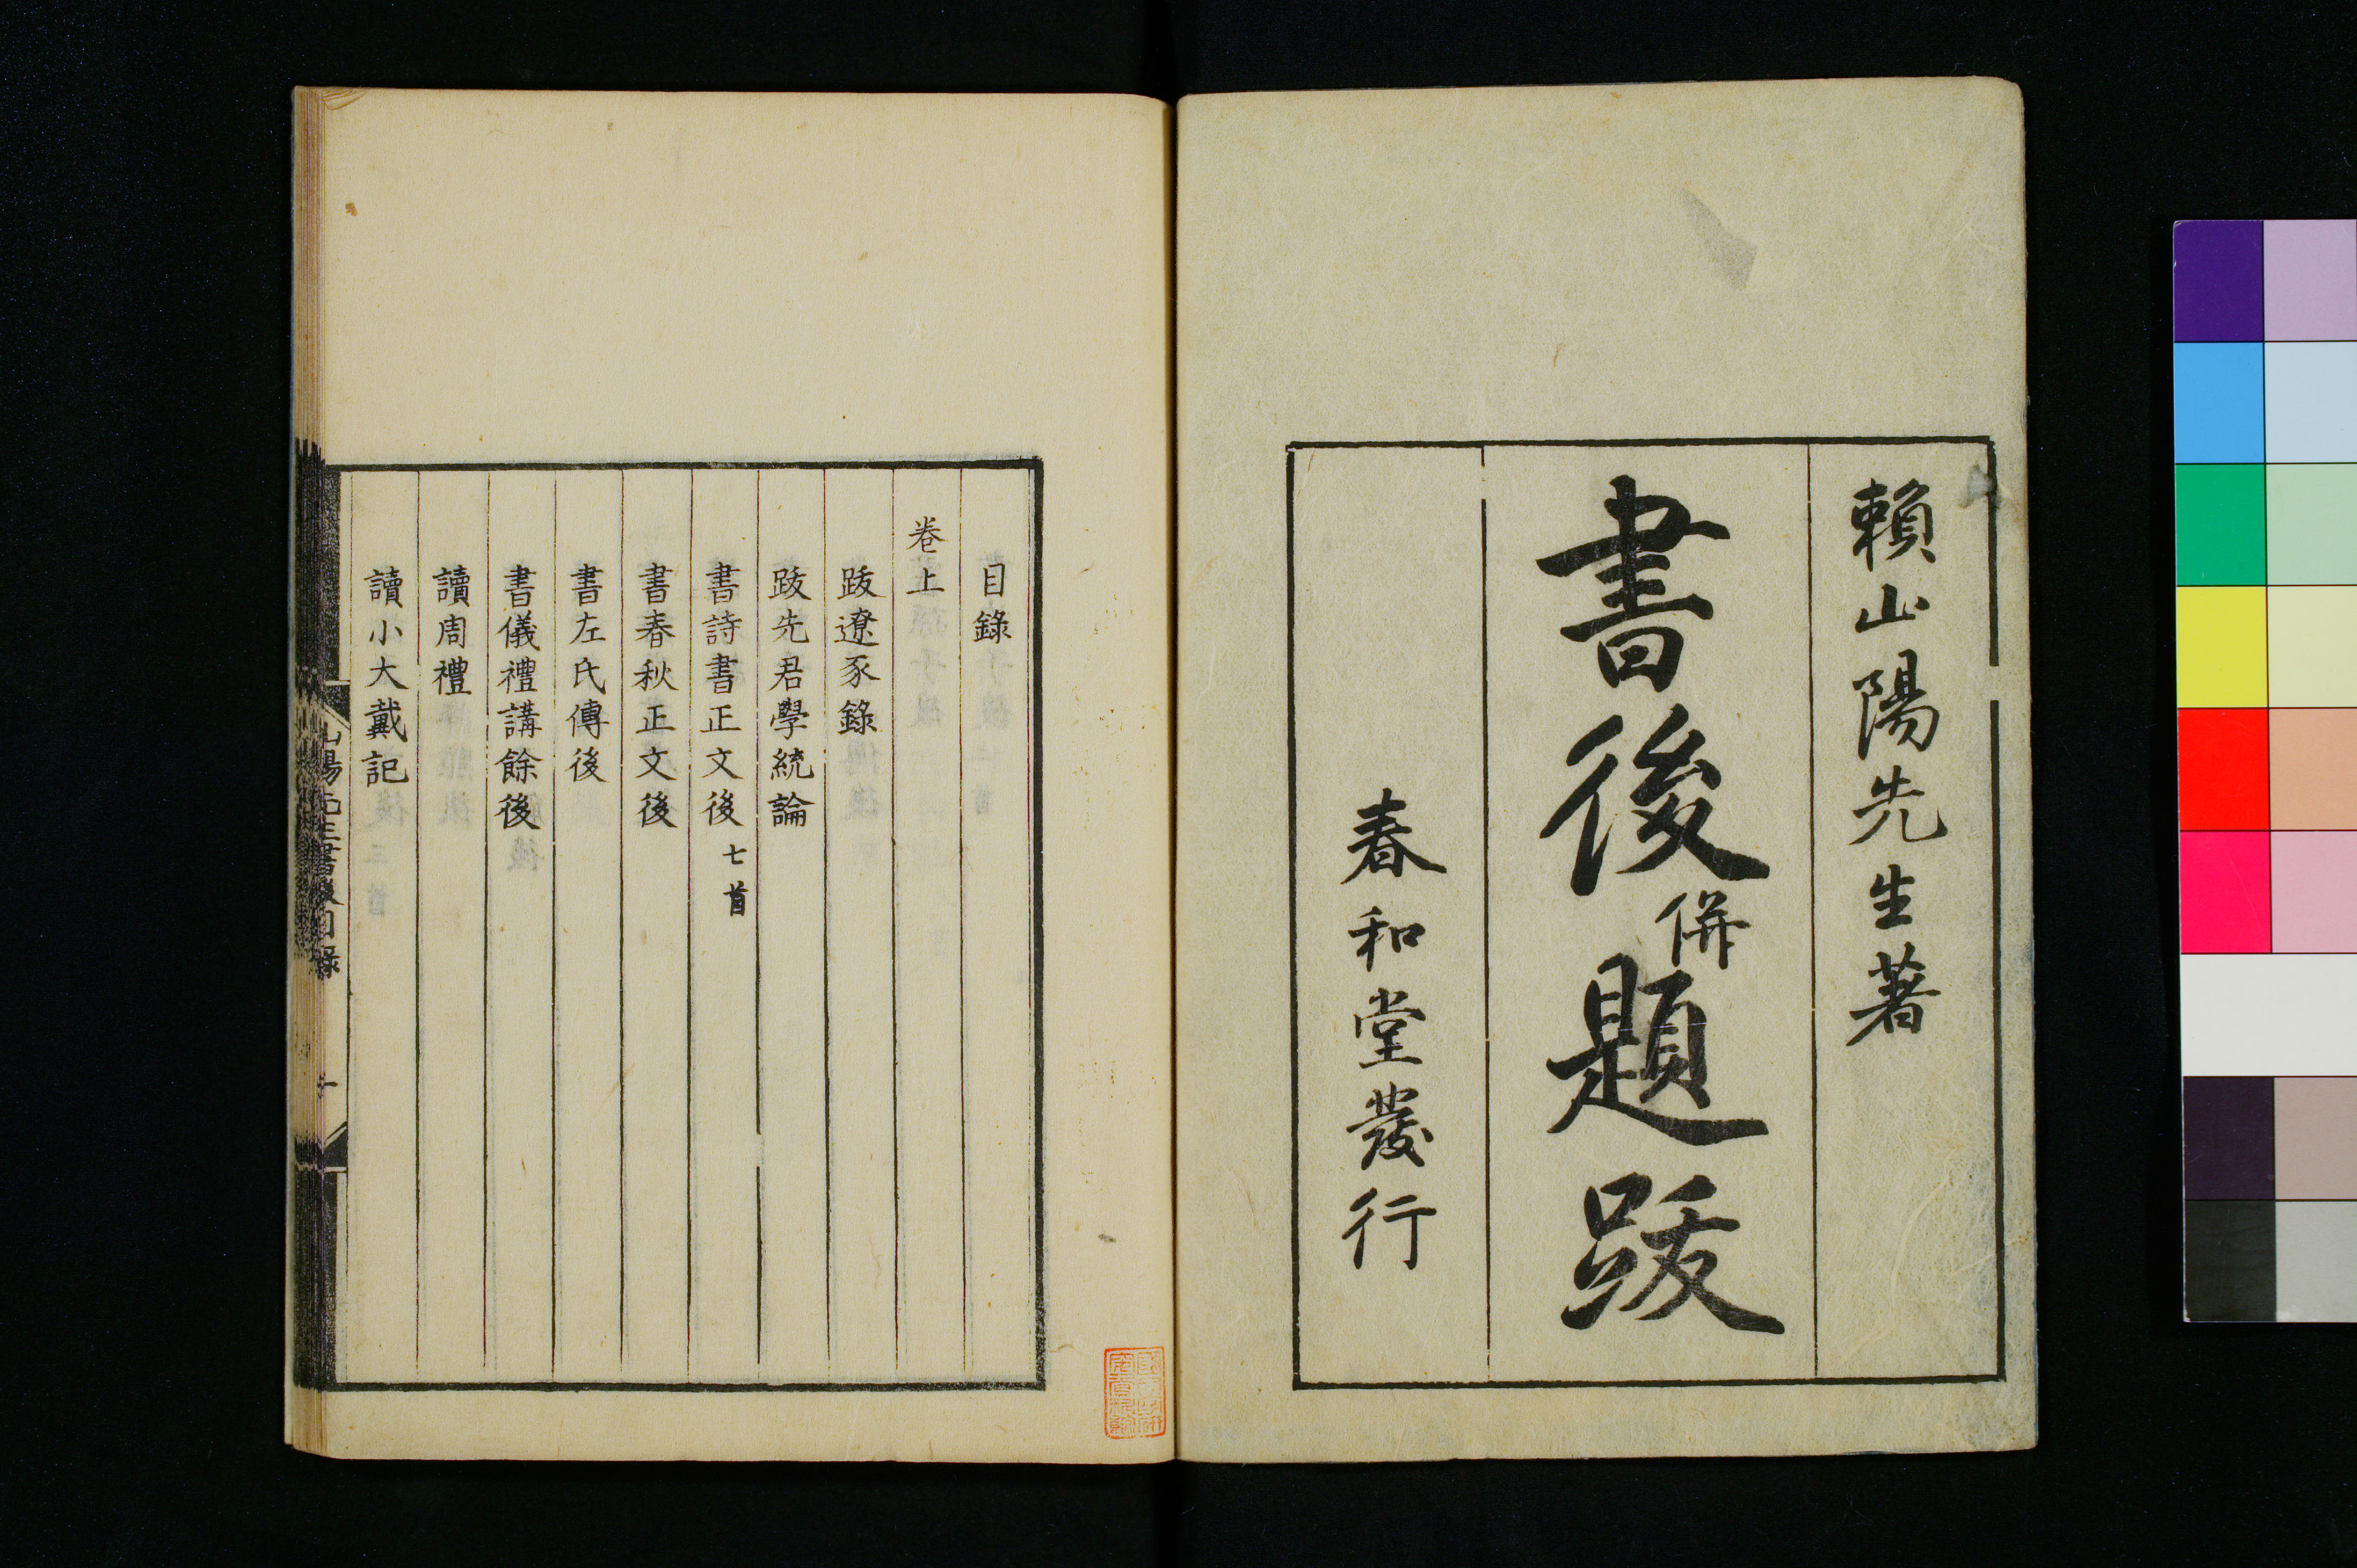 賴山陽先生著
書後併題跋
春和堂發行
目錄
卷上
跋遼豕錄
跋先君學統論
書詩書正文後七首
書春秋正文後
書左氏傳後
書儀禮講餘後
讀周禮
讀小大戴記
山陽先生書後目錄
一